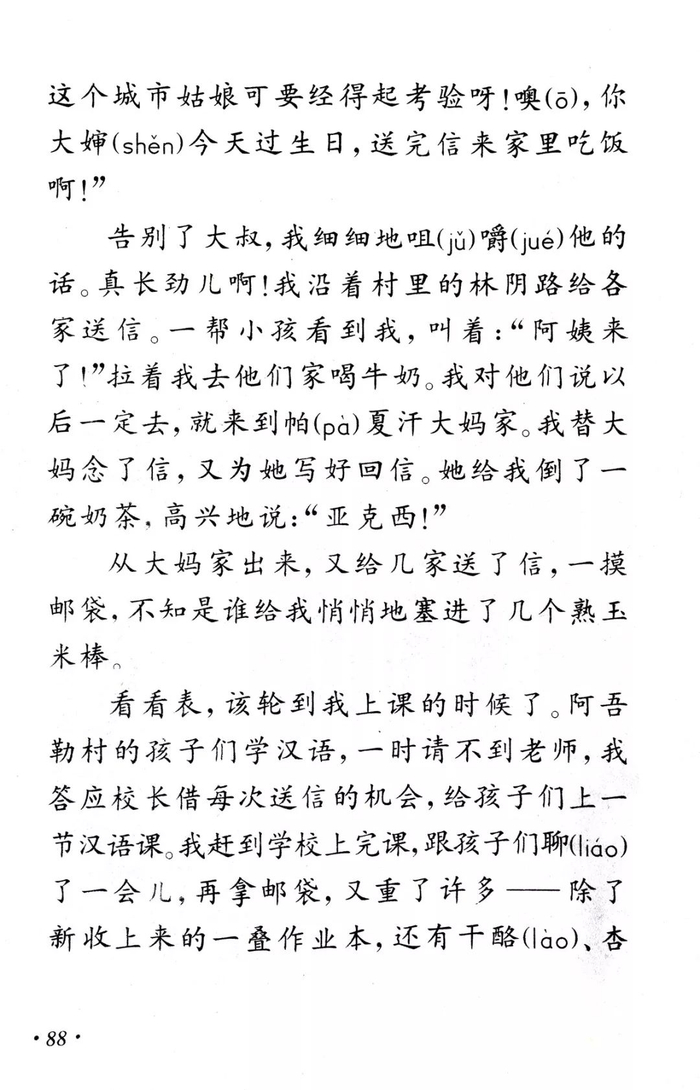 这个城市姑娘可要经得起考验呀！噢(ō)，你
大婶(shěn)今天过生日，送完信来家里吃饭
啊！”
告别了大叔，我细细地咀(jǔ)嚼(jué)他的
话。真长劲儿啊！我沿着村里的林阴路给各
家送信。一帮小孩看到我，叫着：“阿姨来
了！”拉着我去他们家喝牛奶。我对他们说以
后一定去，就来到帕(pà)夏汗大妈家。我替大
妈念了信，又为她写好回信。她给我倒了一
碗奶茶，高兴地说：“亚克西！”
从大妈家出来，又给几家送了信，一摸
邮袋，不知是谁给我悄悄地塞进了几个熟玉
米棒。
看看表，该轮到我上课的时候了。阿吾
勒村的孩子们学汉语，一时请不到老师，我
答应校长借每次送信的机会，给孩子们上一
节汉语课。我赶到学校上完课，跟孩子们聊(liáo)
了一会儿，再拿邮袋，又重了许多——除了
新收上来的一叠作业本，还有干酪(lào)、杏
·88·